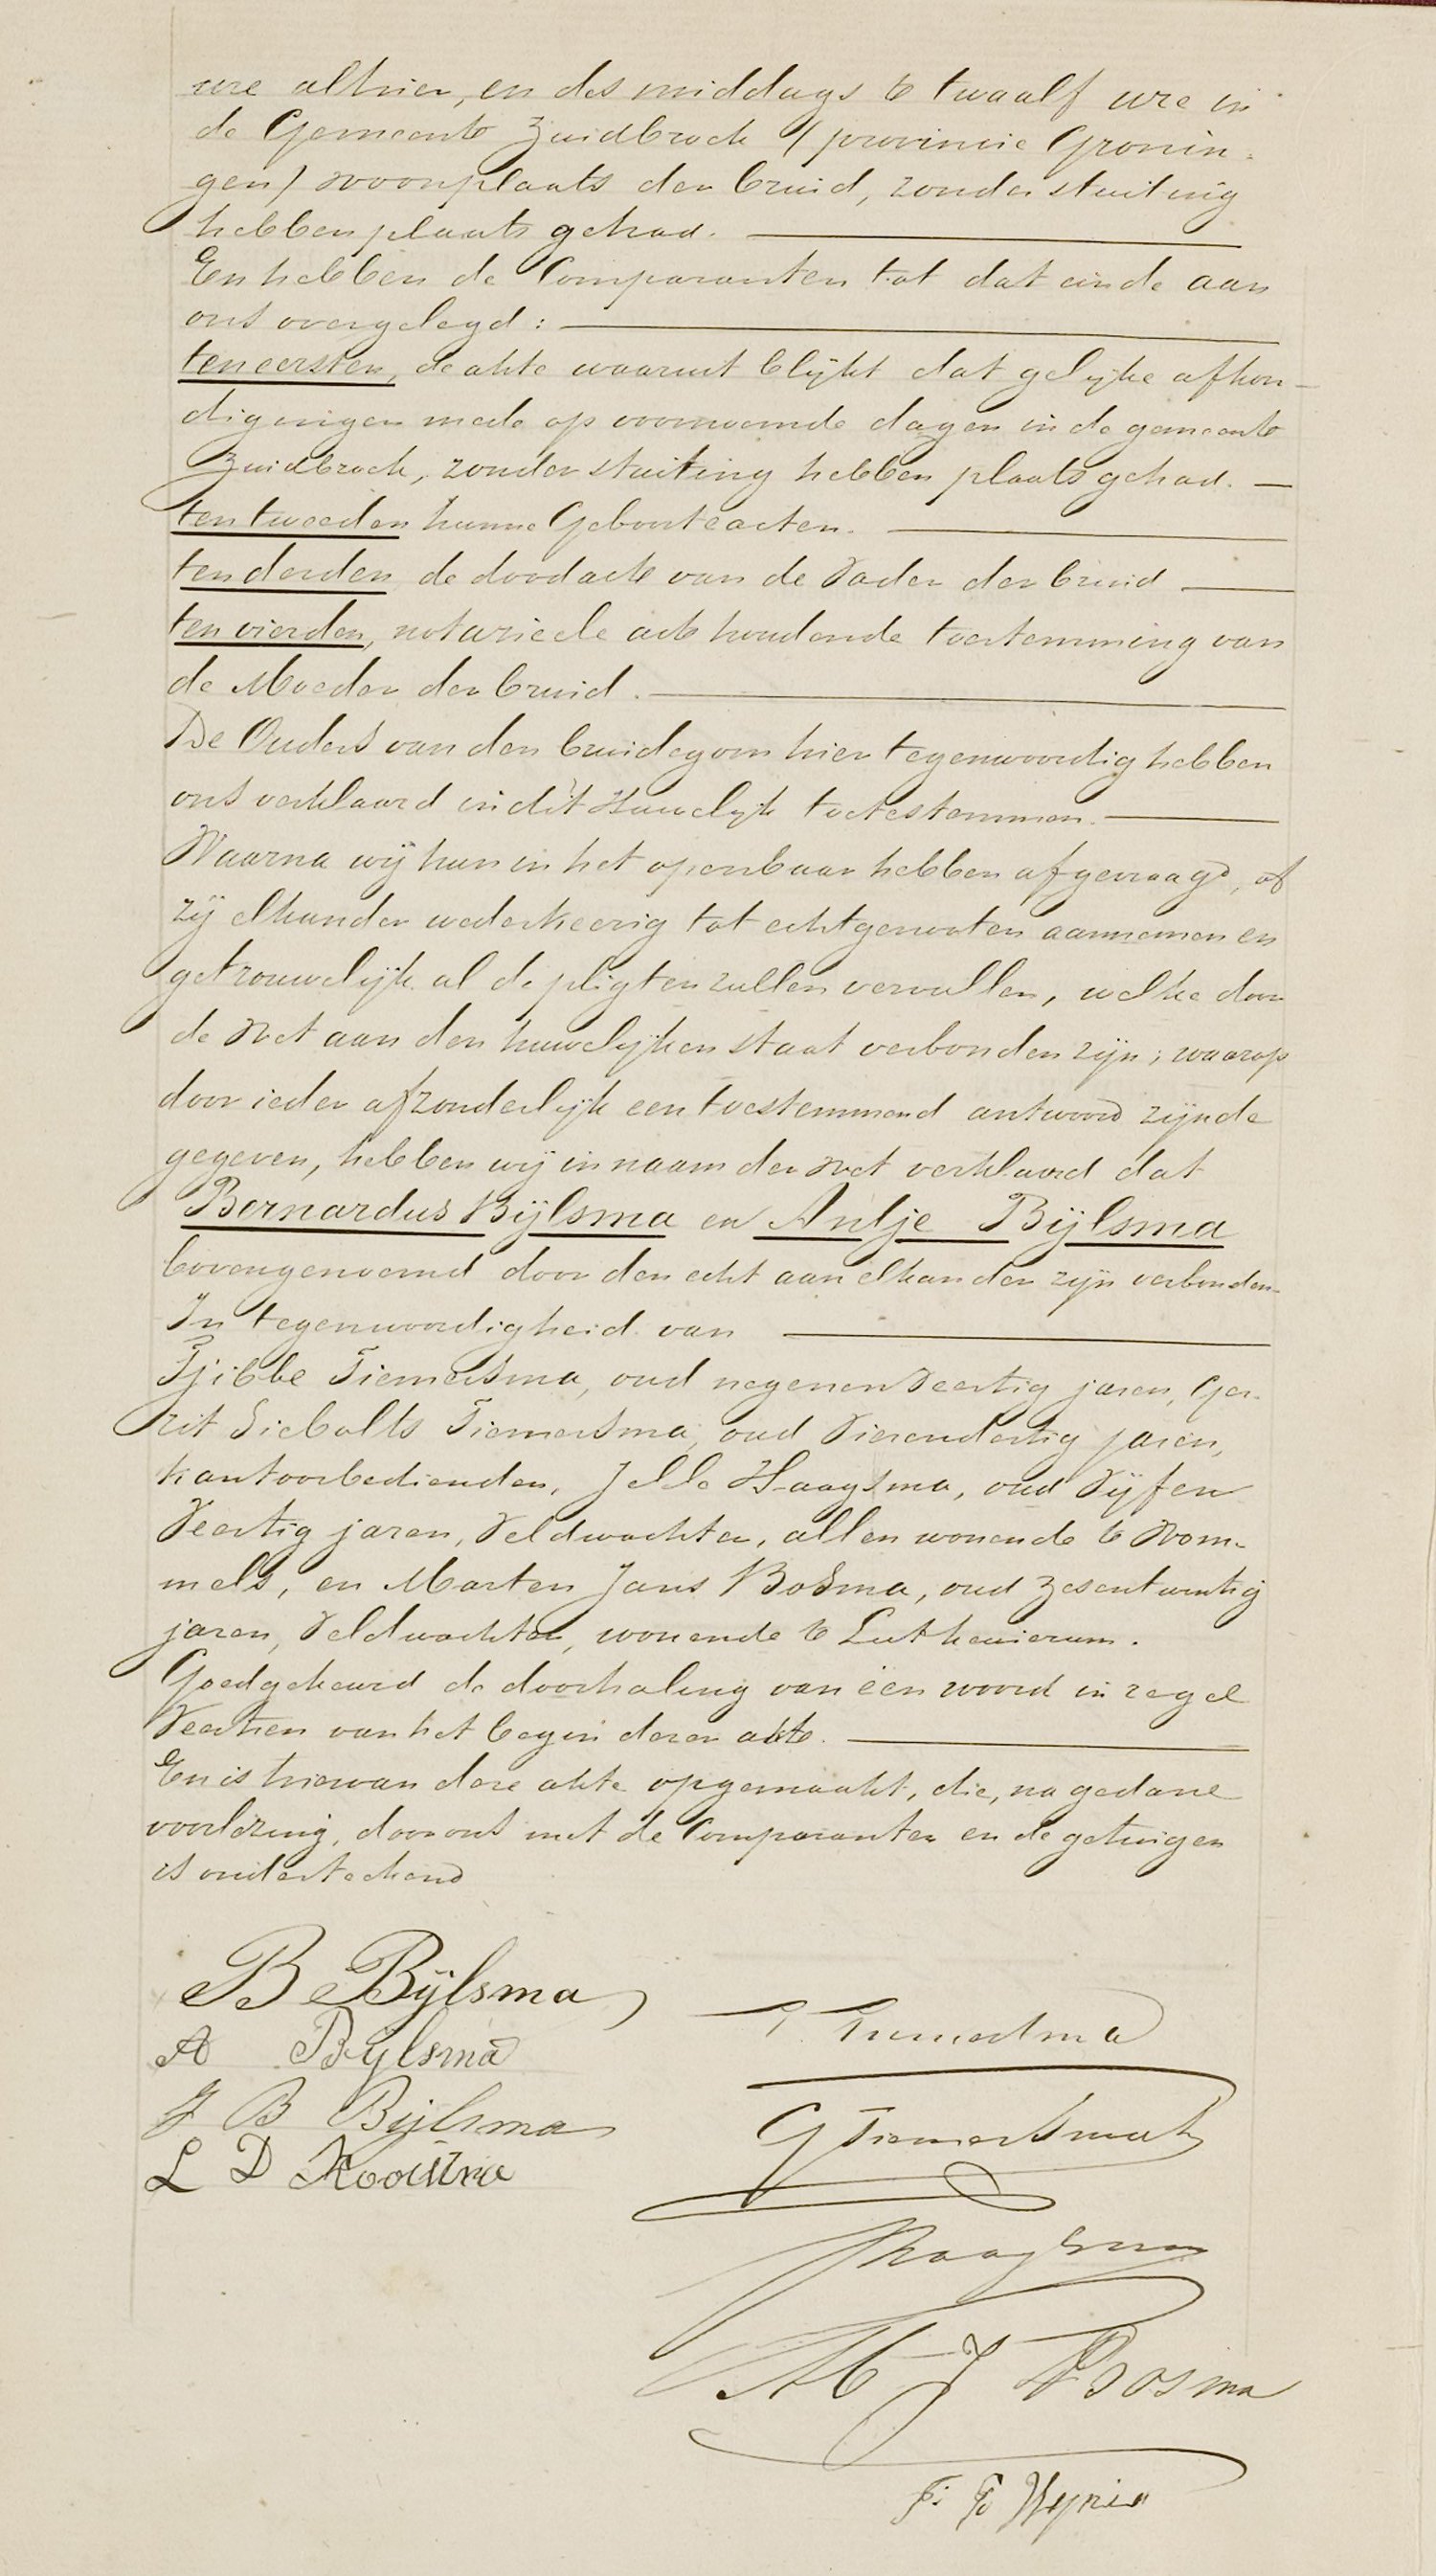 ure alhier, en des middags te twaalf ure in
de Gemeente Zuidbroek (provincie Gronin-
gen) woonplaats der bruid, zonder stuiting
hebben plaats gehad.
En hebben de Comparanten tot dat einde aan
ons overgelegd:
ten eersten, de akte waaruit blijkt dat gelijke afkon-
digingen mede op voornoemde dagen in de gemeente
Zuidbroek, zonder stuiting hebben plaats gehad.
ten tweeden hunne Geboorteacten.
ten derden de doodacte van de Vader der bruid
ten vierden, notarieele acte houdende toestemming van
de Moeder der bruid.
De Ouders van den bruidegom hier tegenwoordig hebben
ons verklaard in dit Huwelijk toetestemmen.
Waarna wij hun in het openbaar hebben afgevraagd, of
zij elkander wederkeerig tot echtgenooten aannemen en
getrouwelijk al de pligten zullen vervullen, welke door
de Wet aan den huwelijken staat verbonden zijn; waarop
door ieder afzonderlijk een toestemmend antwoord zijnde
gegeven, hebben wij in naam der Wet verklaard dat
Bernardus Bijlsma en Antje Bijlsma
bovengenoemd door den echt aan elkander zijn verbonden.
In tegenwoordigheid van
Tjibbe Tiemersma, oud negenenveertig jaren, Ger-
rit Siebolts Tiemersma, oud Vierendertig jaren,
kantoorbedienden, Jelle Haagsma, oud Vijfen
Veertig jaren, Veldwachter, allen wonende te Wom-
mels, en Marten Jans Bosma, oud Zesentwintig
jaren, Veldwachter, wonende te Lutkewierum.
Goedgekeurd de doorhaling van één woord in regel
Veertien van het begin dezer akte.
En is hiervan deze akte opgemaakt, die, na gedane
voorlezing, door ons met de Comparanten en de getuigen
is onderteekend
B Bijlsma
A Bijlsma
J B Bijlsma
L D Kooistra
T. Tiemersma
G Tiemersma
JHaagsma
M J Bosma